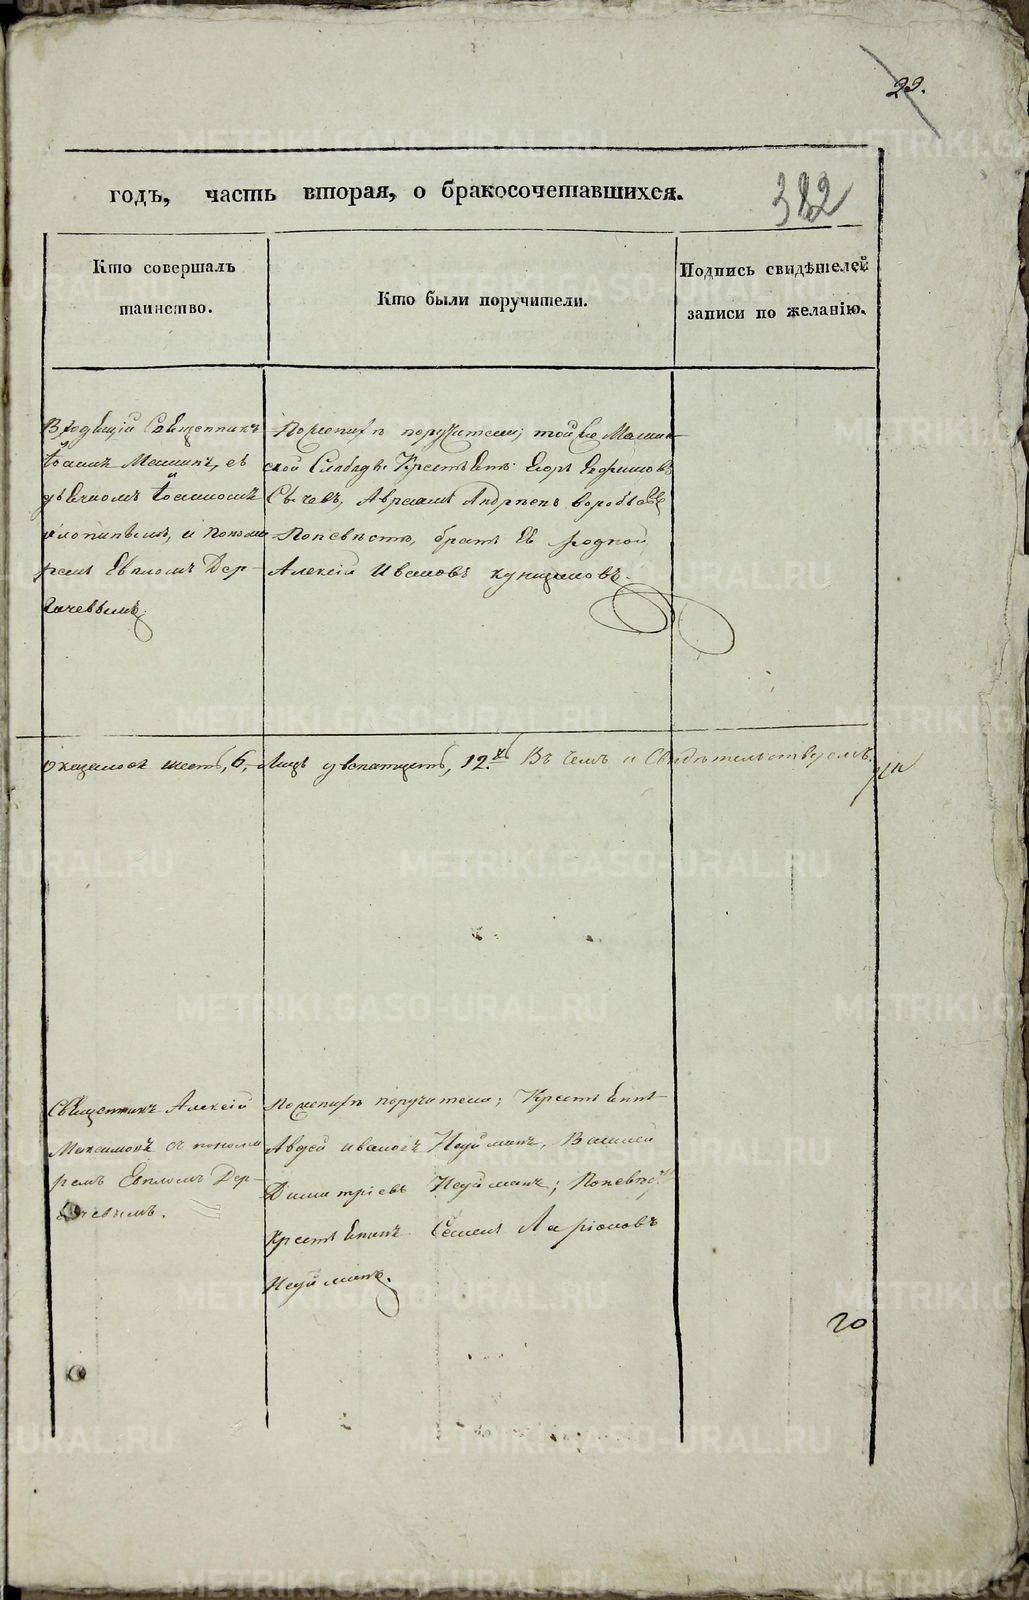 22.
годъ, часть вторая, о бракосочетавшихся.
382
Кто совершалъ
таинство.
Кто были поручители.
Подпись свидѣтелей
записи по желанію.
Священникъ
Іоаннъ
дьячкомъ Іоанномъ
и понома
ремъ Евпломъ Дер-
гачевымъ.
По женихѣ поручители; той же
ской Слободы Крестьяне: Егоръ Ефимовъ
Сычевъ, Авраамъ Андреевъ Воробьевъ
По невѣстѣ, братъ Ея родной
Алексій Ивановъ
оказалося шесть, 6, лицъ двенатцеть, 12.ть Въ чемъ и Свидѣтельствуемъ.
Священникъ Алексій
Максимовъ съ понома
ремъ Евпломъ Дер-
гачевымъ.
По женихѣ поручители; Крестьяне
Авдей Ивановъ Неуйминъ, Василей
Димитріевъ Неуйминъ; По невѣстѣ
Крестьянинъ Семенъ Ларіоновъ
Неуйминъ.
20
METRIKI.GASO-URAL.RU